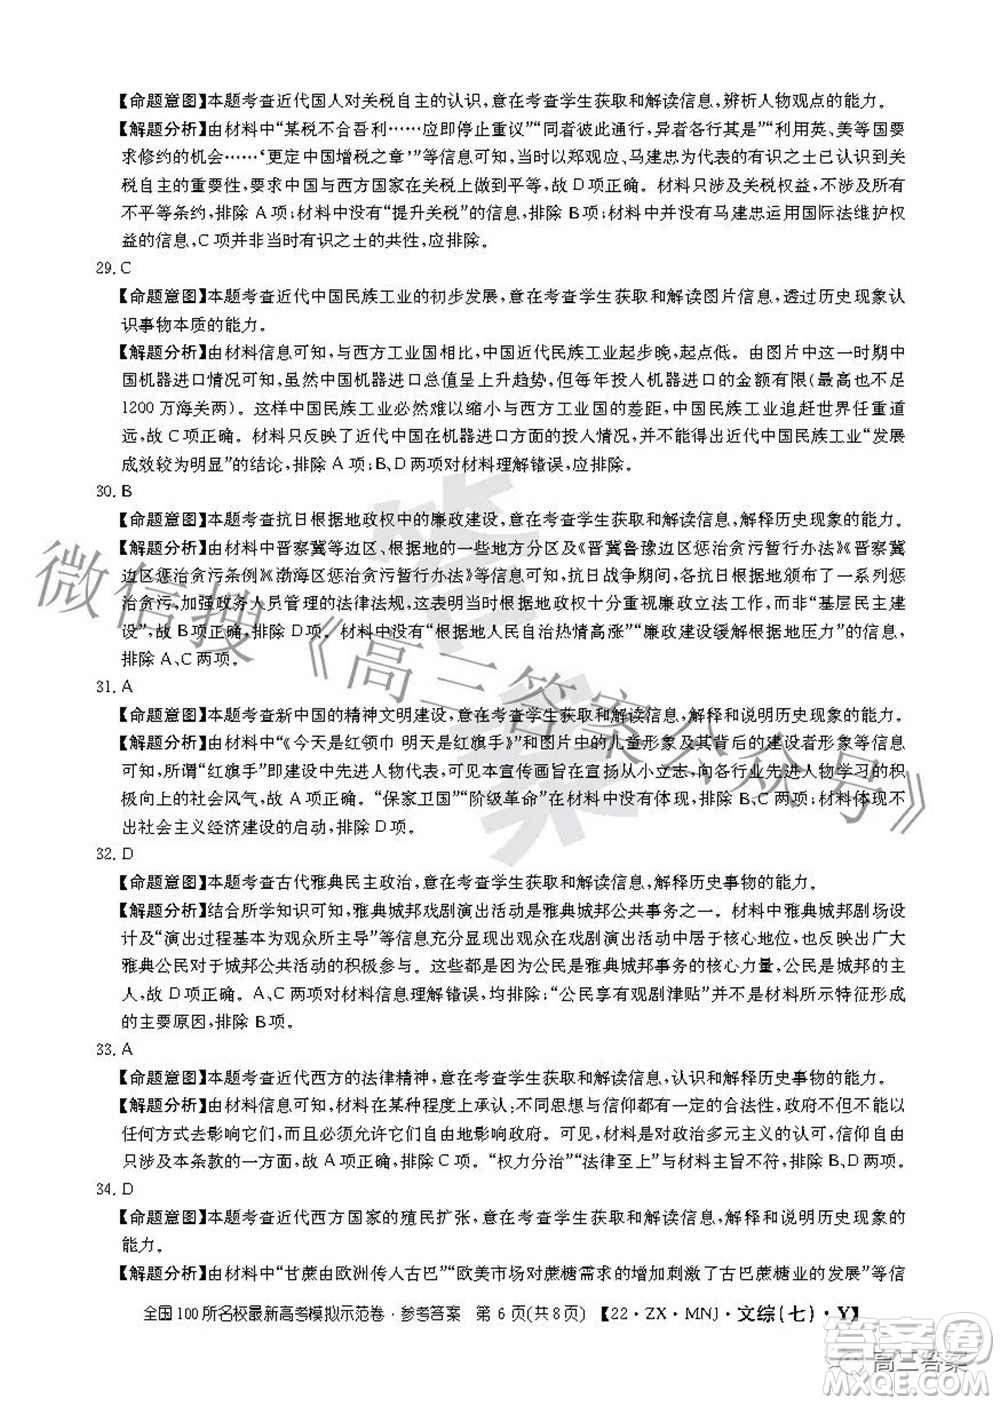 【命题意图】本题考查近代国人对关税自主的认识,意在考查学生获取和解读信息,辨析人物观点的能力。
【解题分析】由材料中“某税不合吾利……应即停止重议”“同者彼此通行,异者各行其是”“利用英、美等国要
求修约的机会……‘更定中国增税之章’”等信息可知,当时以郑观应、马建忠为代表的有识之士已认识到关
税自主的重要性,要求中国与西方国家在关税上做到平等,故 D项正确。材料只涉及关税权益,不涉及所有
不平等条约,排除 A项;材料中没有“提升关税”的信息,排除 B项;材料中只有马建忠运用国际法维护权
益的信息,C 项并非当时有识之士的共性,应排除。
29. C
【命题意图】本题考查近代中国民族工业的初步发展,意在考查学生获取和解读图片信息,透过历史现象认
识事物本质的能力。
【解题分析】由材料信息可知,与西方工业国相比,中国近代民族工业起步晚,起点低。由图片中这一时期中
国机器进口情况可知,虽然中国机器进口总值呈上升趋势,但每年投入机器进口的金额有限(最高也不足
1200 万海关两)。这样中国民族工业必然难以缩小与西方工业国的差距,中国民族工业追赶世界任重道
远,故 C项正确。材料只反映了近代中国在机器进口方面的投入情况,不能得出近代中国民族工业“发展
成效较为明显”的结论,排除 A项;B、D两项对材料理解错误,应排除。
30. B
【命题意图】本题考查抗日根据地政权中的廉政建设,意在考查学生获取和解读信息,解释历史现象的能力。
【解题分析】由材料中晋察冀等边区、根据地的一些地方分区及《晋冀鲁豫边区惩治贪污暂行办法》《晋察冀
边区惩治贪污条例》《渤海区惩治贪污暂行办法》等信息可知,抗日战争期间,各抗日根据地颁布了一系列惩
治贪污,加强政务人员管理的法律法规,这表明当时根据地政权十分重视廉政立法工作,而非“基层民主建
设”,故 B项正确,排除 D项。材料中没有“根据地人民自治热情高涨”“廉政建设缓解根据地压力”的信息,
排除 A、C 两项。
31. A
【命题意图】本题考查新中国的精神文明建设,意在考查学生获取和解读信息,解释和说明历史现象的能力。
【解题分析】由材料中“《今天是红领巾 明天是红旗手》”和图片中的儿童形象及其背后的建设者形象等信息
可知,所谓“红旗手”即建设中先进人物代表,可见本宣传画旨在宣扬从小立志,向各行业先进人物学习的积
极向上的社会风气,故 A项正确。“保家卫国”“阶级革命”在材料中没有体现,排除 B、C两项;材料体现不
出社会主义经济建设的启动,排除 D项。
32. D
【命题意图】本题考查古代雅典民主政治,意在考查学生获取和解读信息,解释历史事物的能力。
【解题分析】结合所学知识可知,雅典城邦戏剧演出活动是雅典城邦公共事务之一。材料中雅典城邦剧场设
计及“演出过程基本为观众所主导”等信息充分显现出观众在戏剧演出活动中居于核心地位,也反映出广大
雅典公民对于城邦公共活动的积极参与。这些都是公民是雅典城邦事务的核心力量,公民是城邦的主
人,故 D项正确。A、C两项对材料信息理解错误,应排除;“公民享有观剧津贴”并不是材料所示特征形成
的主要原因,排除 B项。
33. A
【命题意图】本题考查近代西方的法律精神,意在考查学生获取和解读信息,认识和解读历史事物的能力。
【解题分析】由材料信息可知,材料在某种程度上承认:不同思想与信仰都是具有合理性,政府不但不能以
任何方式去影响它们,而且必须允许它们自由地影响政府。可见,材料是对政治多元主义的认可,信仰自由
只涉及本条款的一方面,故 A项正确,排除 C项。“权力分治”“法律至上”与材料主旨不符,排除 B、D两项。
34. D
【命题意图】本题考查近代西方国家的殖民扩张,意在考查学生获取和解读信息,解释和说明历史现象的
能力。
【解题分析】由材料中“甘蔗由欧洲传入古巴”“欧美市场对蔗糖需求的增长刺激了古巴蔗糖业的发展”等信
全国100所名校最新高考模拟示范卷·参考答案 第 6 页(共 8 页) 【22·ZX·MNJ·文综(七)·Y】
微信搜《高三答案公众号》
答案
答案圈
高三答案
MXQE.COM